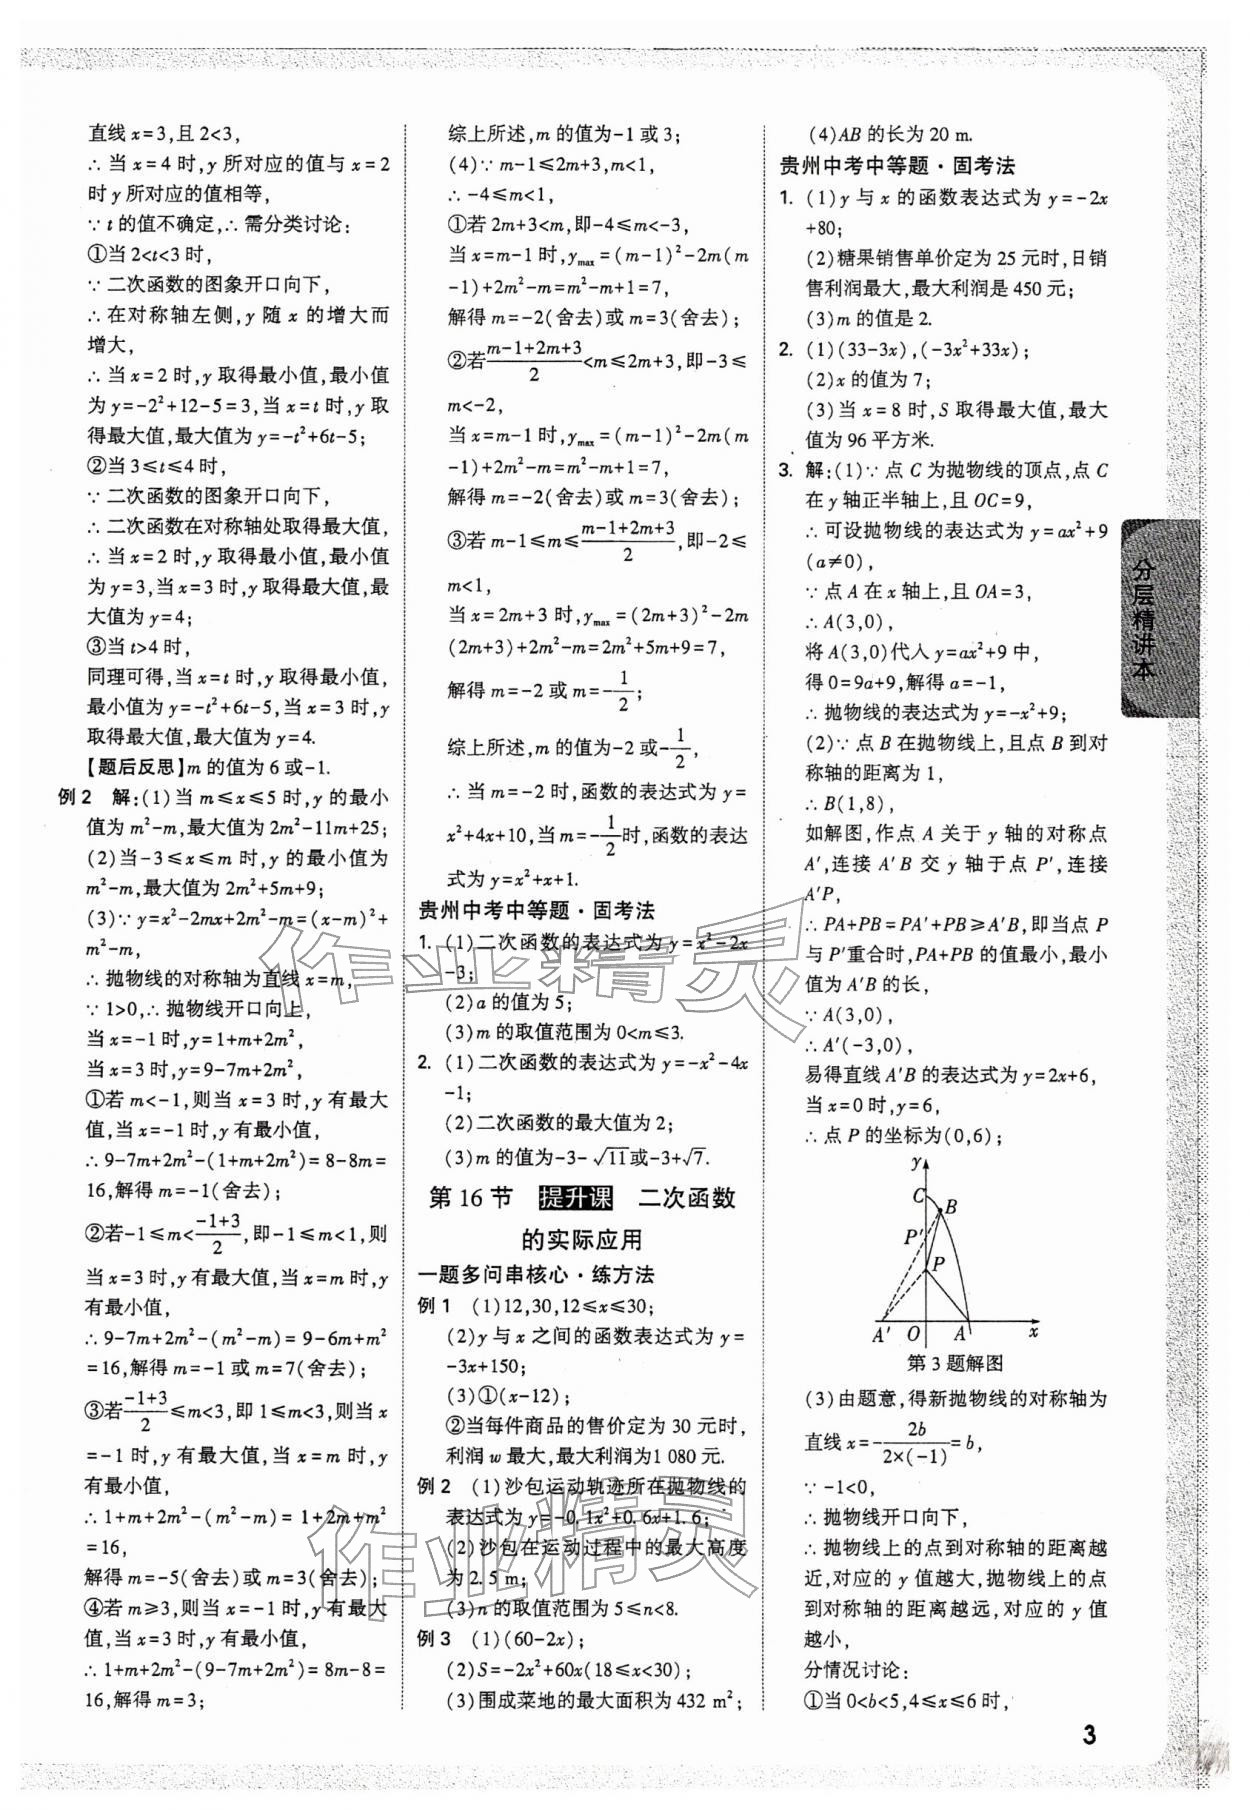 直线 x=3,且 2<3,
∴ 当 x=4 时,y 所对应的值与 x=2
时 y 所对应的值相等,
∵ t 的值不确定,∴ 需分类讨论:
①当 2<t<3 时,
∵ 二次函数的图象开口向下,
∴ 在对称轴左侧,y 随 x 的增大而
增大,
∴ 当 x=2 时,y 取得最小值,最小值
为 y=-2²+12-5=3,当 x=t 时,y 取
得最大值,最大值为 y=-t²+6t-5;
②当 3≤t≤4 时,
∵ 二次函数的图象开口向下,
∴ 二次函数在对称轴处取得最大值,
∴ 当 x=2 时,y 取得最小值,最小值
为 y=3,当 x=3 时,y 取得最大值,最
大值为 y=4;
③当 t>4 时,
同理可得,当 x=t 时,y 取得最小值,
最小值为 y=-t²+6t-5,当 x=3 时,y
取得最大值,最大值为 y=4.
【题后反思】m 的值为 6 或-1.
例 2 解:(1)当 m≤x≤5 时,y 的最小
值为 m²-m,最大值为 2m²-11m+25;
(2)当-3≤x≤m 时,y 的最小值为
m²-m,最大值为 2m²+5m+9;
(3)∵ y=x²-2mx+2m²-m=(x-m)²+
m²-m,
∴ 抛物线的对称轴为直线 x=m,
∵ 1>0,∴ 抛物线开口向上,
当 x=-1 时,y=1+m+2m²,
当 x=3 时,y=9-7m+2m²,
①若 m<-1,则当 x=3 时,y 有最大
值,当 x=-1 时,y 有最小值,
∴ 9-7m+2m²-(1+m+2m²)=8-8m=
16,解得 m=-1(舍去);
②若-1≤m<(-1+3)/2,即-1≤m<1,则
当 x=3 时,y 有最大值,当 x=m 时,y
有最小值,
∴ 9-7m+2m²-(m²-m)=9-6m+m²
=16,解得 m=-1 或 m=7(舍去);
③若(-1+3)/2≤m<3,即 1≤m<3,则当 x
=-1 时,y 有最大值,当 x=m 时,y
有最小值,
∴ 1+m+2m²-(m²-m)=1+2m+m²
=16,
解得 m=-5(舍去)或 m=3(舍去);
④若 m≥3,则当 x=-1 时,y 有最大
值,当 x=3 时,y 有最小值,
∴ 1+m+2m²-(9-7m+2m²)=8m-8=
16,解得 m=3;
综上所述,m 的值为-1 或 3;
(4)∵ m-1≤2m+3,m<1,
∴ -4≤m<1,
①若 2m+3<m,即-4≤m<-3,
当 x=m-1 时,ymax=(m-1)²-2m(m
-1)+2m²-m=m²-m+1=7,
解得 m=-2(舍去)或 m=3(舍去);
②若(m-1+2m+3)/2<m≤2m+3,即-3≤
m<-2,
当 x=m-1 时,ymax=(m-1)²-2m(m
-1)+2m²-m=m²-m+1=7,
解得 m=-2(舍去)或 m=3(舍去);
③若 m-1≤m≤(m-1+2m+3)/2,即-2≤
m<1,
当 x=2m+3 时,ymax=(2m+3)²-2m
(2m+3)+2m²-m=2m²+5m+9=7,
解得 m=-2 或 m=-1/2;
综上所述,m 的值为-2 或-1/2,
∴ 当 m=-2 时,函数的表达式为 y=
x²+4x+10,当 m=-1/2时,函数的表达
式为 y=x²+x+1.
贵州中考中等题·固考法
1. (1)二次函数的表达式为 y=x²-2x
-3;
(2)a 的值为 5;
(3)m 的取值范围为 0<m≤3.
2. (1)二次函数的表达式为 y=-x²-4x
-1;
(2)二次函数的最大值为 2;
(3)m 的值为-3-√11或-3+√7.
第 16 节 提升课 二次函数
的实际应用
一题多问串核心·练方法
例 1 (1)12,30,12≤x≤30;
(2)y 与 x 之间的函数表达式为 y=
-3x+150;
(3)①(x-12);
②当每件商品的售价定为 30 元时,
利润 w 最大,最大利润为1 080 元.
例 2 (1)沙包运动轨迹所在抛物线的
表达式为 y=-0.1x²+0.6x+1.6;
(2)沙包在运动过程中的最大高度
为 2.5 m;
(3)n 的取值范围为 5≤n<8.
例 3 (1)(60-2x);
(2)S=-2x²+60x(18≤x<30);
(3)围成菜地的最大面积为 432 m²;
(4)AB 的长为 20 m.
贵州中考中等题·固考法
1. (1)y 与 x 的函数表达式为 y=-2x
+80;
(2)糖果销售单价定为 25 元时,日销
售利润最大,最大利润是 450 元;
(3)m 的值是 2.
2. (1)(33-3x),(-3x²+33x);
(2)x 的值为 7;
(3)当 x=8 时,S 取得最大值,最大
值为 96 平方米.
3. 解:(1)∵ 点 C 为抛物线的顶点,点 C
在 y 轴正半轴上,且 OC=9,
∴ 可设抛物线的表达式为 y=ax²+9
(a≠0),
∵ 点 A 在 x 轴上,且 OA=3,
∴ A(3,0),
将 A(3,0)代入 y=ax²+9 中,
得 0=9a+9,解得 a=-1,
∴ 抛物线的表达式为 y=-x²+9;
(2)∵ 点 B 在抛物线上,且点 B 到对
称轴的距离为 1,
∴ B(1,8),
如解图,作点 A 关于 y 轴的对称点
A′,连接 A′B 交 y 轴于点 P′,连接
A′P,
∴ PA+PB=PA′+PB≥A′B,即当点 P
与 P′重合时,PA+PB 的值最小,最小
值为 A′B 的长,
∵ A(3,0),
∴ A′(-3,0),
易得直线 A′B 的表达式为 y=2x+6,
当 x=0 时,y=6,
∴ 点 P 的坐标为(0,6);
y
C
B
P′
P
A′ O A x
第 3 题解图
(3)由题意,得新抛物线的对称轴为
直线 x=-2b/(2×(-1))=b,
∵ -1<0,
∴ 抛物线开口向下,
∴ 抛物线上的点到对称轴的距离越
近,对应的 y 值越大,抛物线上的点
到对称轴的距离越远,对应的 y 值
越小,
分情况讨论:
①当 0<b<5,4≤x≤6 时,
分层精讲本
3
作业精灵
作业精灵